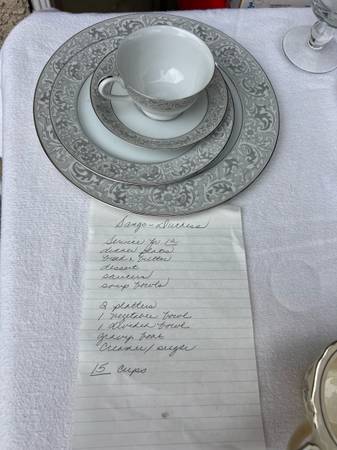 Sango - Duchess
Service for 12
dinner plates
bread & butter
dessert
saucers
soup bowls
2 platters
1 vegetable bowl
1 divided bowl
gravy boat
Creamer/sugar
15 cups